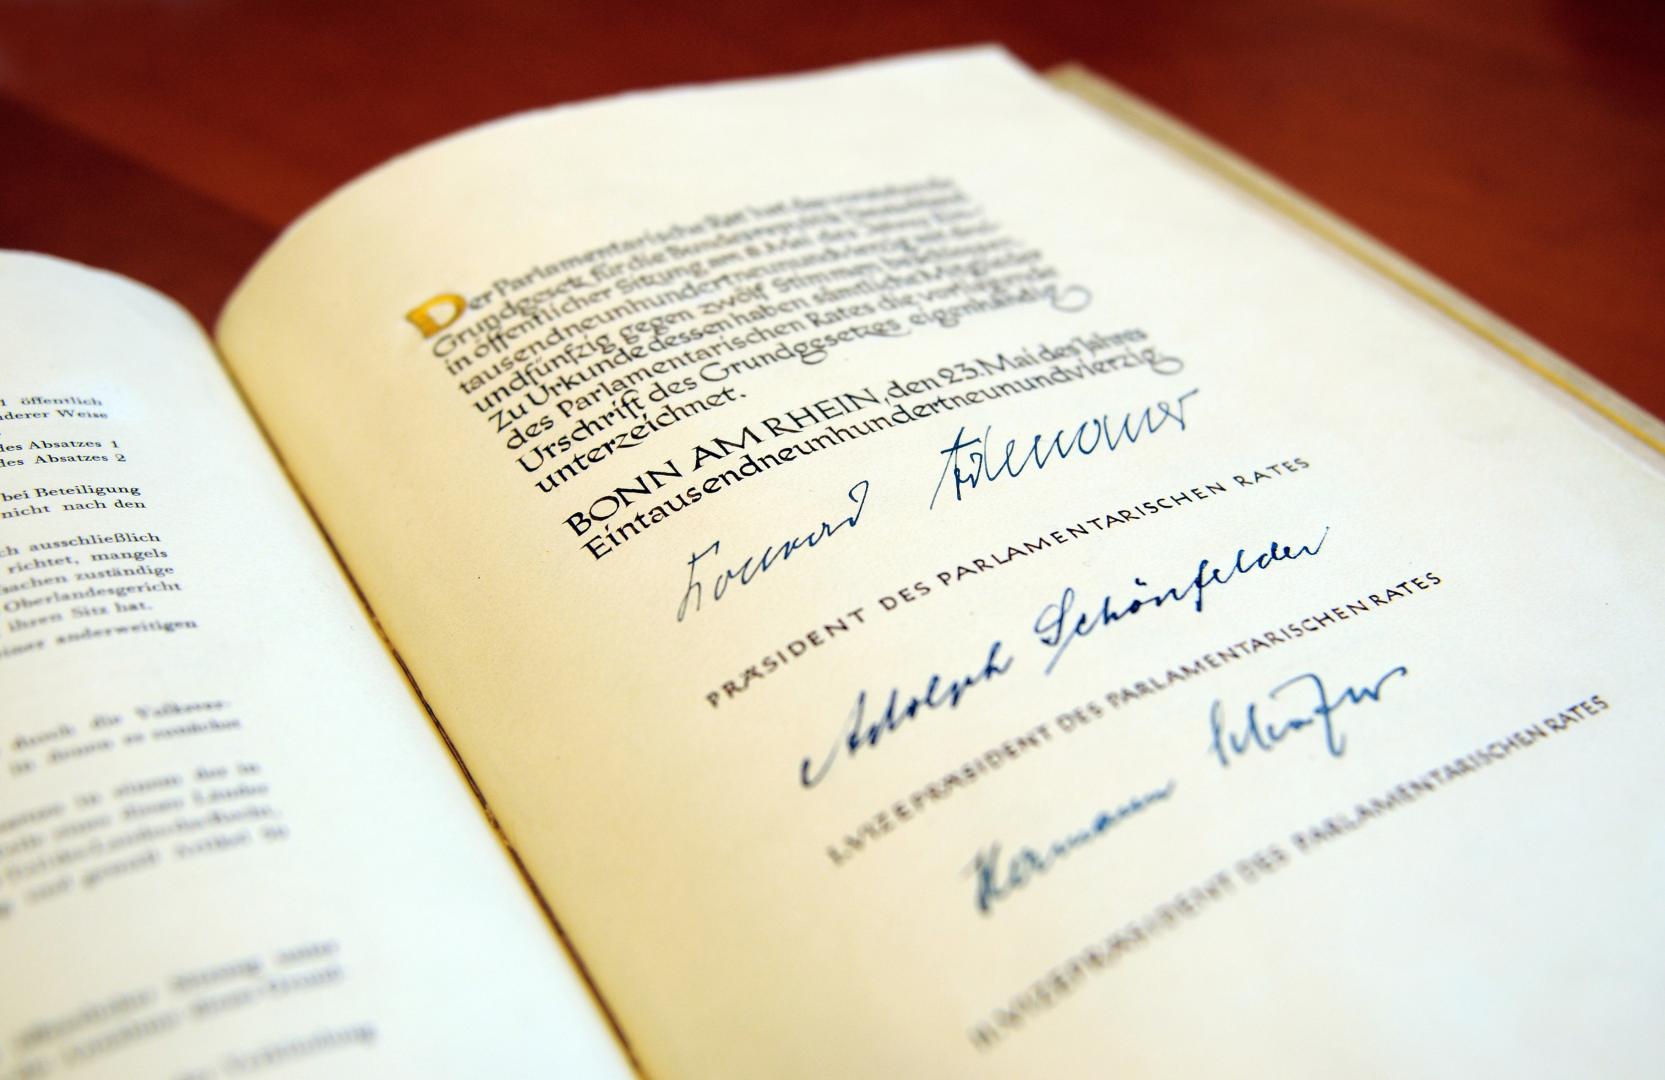 1 öffentlich
anderer Weise
des Absatzes 1
des Absatzes 2
bei Beteiligung
nicht nach den
ausschließlich
richtet, mangels
zuständige
Oberlandesgericht
ihren Sitz hat.
einer anderweitigen
durch die
in denen es zunächst
in einem der in
und gemäß Artikel
Der Parlamentarische Rat hat das vorstehende
Grundgesetz für die Bundesrepublik Deutschland
in öffentlicher Sitzung am 8. Mai des Jahres Ein-
tausendneunhundertneunundvierzig mit drei-
undfünfzig gegen zwölf Stimmen beschlossen.
Zu Urkunde dessen haben sämtliche Mitglieder
des Parlamentarischen Rates die vorliegende
Urschrift des Grundgesetzes eigenhändig
unterzeichnet.
BONN AM RHEIN, den 23. Mai des Jahres
Eintausendneunhundertneunundvierzig
Konrad Adenauer
PRÄSIDENT DES PARLAMENTARISCHEN RATES
Adolph Schönfelder
I. VIZEPRÄSIDENT DES PARLAMENTARISCHEN RATES
Hermann Schäfer
II. VIZEPRÄSIDENT DES PARLAMENTARISCHEN RATES